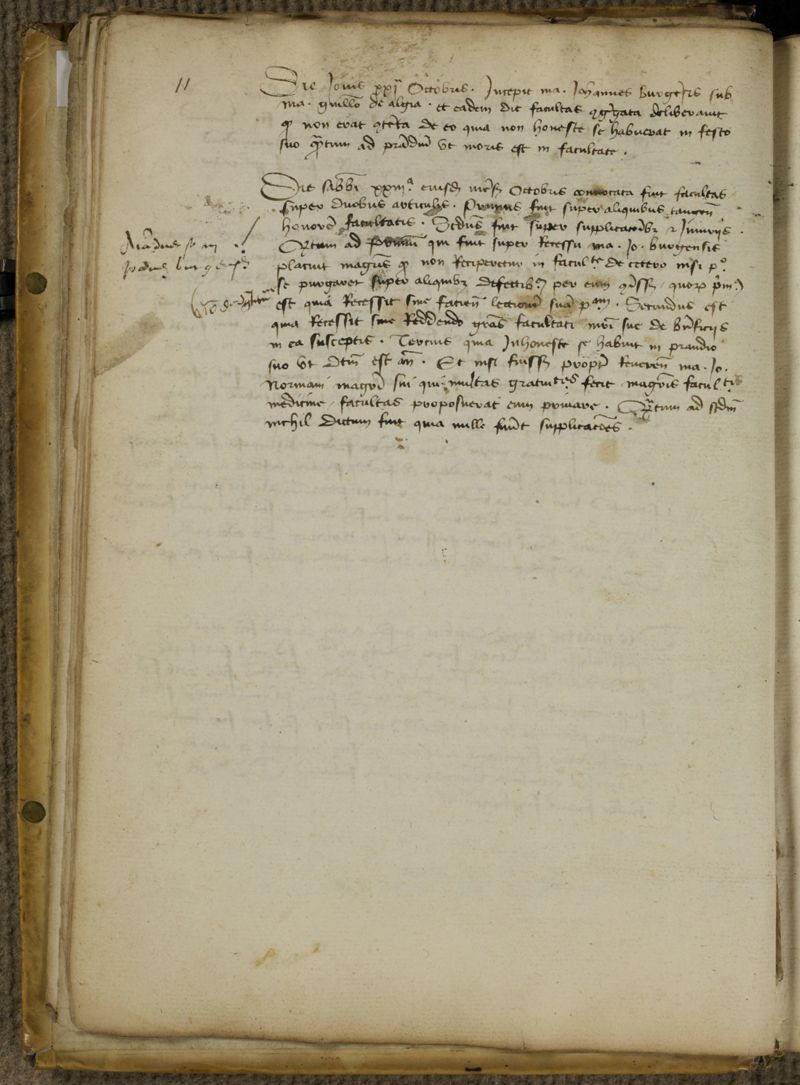 11
Die Jovis xxj Octobris. Incepit ma. Johannes burgensis sub
ma. guillo de algia. et eadem die facultas congregata deliberavit
quod non erat contenta de eo quia non honeste se habuerat in festo
suo quantum ad prandium ut moris est in facultate.
Die sabbi xxiija eiusdem mensis Octobris convocata fuit facultas
super duobus articulis. Primus fuit super aliquibus tangen
honorem facultatis. Secundus fuit super supplicationibus et Iniuriis.
Quantum ad primum qui fuit super Recessu ma. Jo. burgensis
placuit magris quod non Reciperetur in facultate de cetero nisi po
se purgaret super aliquibus defectibus per eum commissis quorum primus
est quia Recessit sine faciendo lectionem suam pam. Secundus est
quia Recessit sine Reddendo gras facultati more suo de beneficiis
in ea susceptis. Tercius quia Inhoneste se habuit in prandio
suo ut dictum est an. Et nisi fuisset propter Reveren ma. Jo.
Normani magri sui qui multas gratuites fecit magris facultatis
medicine facultas proposuerat eum privare. Quantum ad secdm
nichil dictum fuit quia nulle fuerunt supplicationes.